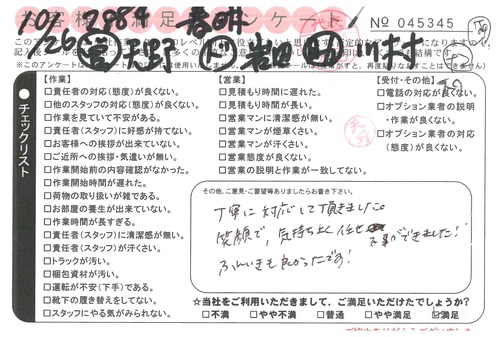 お客様満足アンケート
No 045345
10/26
2984
春日井
営 天野
作 岩田
チェックリスト
【作業】
□責任者の対応(態度)が良くない。
□他のスタッフの対応(態度)が良くない。
□作業を見ていて不安がある。
□責任者(スタッフ)に好感が持てない。
□お客様への挨拶が出来ていない。
□ご近所への挨拶・気遣いが無い。
□作業開始前の内容確認がなかった。
□作業開始時間が遅れた。
□荷物の取り扱いが雑である。
□お部屋の養生が出来ていない。
□作業時間が長すぎる。
□責任者(スタッフ)に清潔感が無い。
□責任者(スタッフ)が汗くさい。
□トラックが汚い。
□梱包資材が汚い。
□運転が不安(下手)である。
□靴下の履き替えをしてない。
□スタッフにやる気がみられない。
【営業】
□見積もり時間に遅れた。
□見積もり時間が長い。
□営業マンに清潔感が無い。
□営業マンが煙草くさい。
□営業マンが汗くさい。
□営業態度が良くない。
□営業の説明と作業が一致してない。
【受付・その他】
□電話の対応が良くない。
□オプション業者の説明
・作業が良くない。
□オプション業者の対応
(態度)が良くない。
その他、ご意見・ご要望等ありましたらお書き下さい。
丁寧に対応して頂きました。
笑顔で、気持ちよく任せる事ができました!
ふんいきも良かったです!
☆当社をご利用いただきまして、ご満足いただけたでしょうか?
□不満 □やや不満 □普通 □やや満足 ☑満足